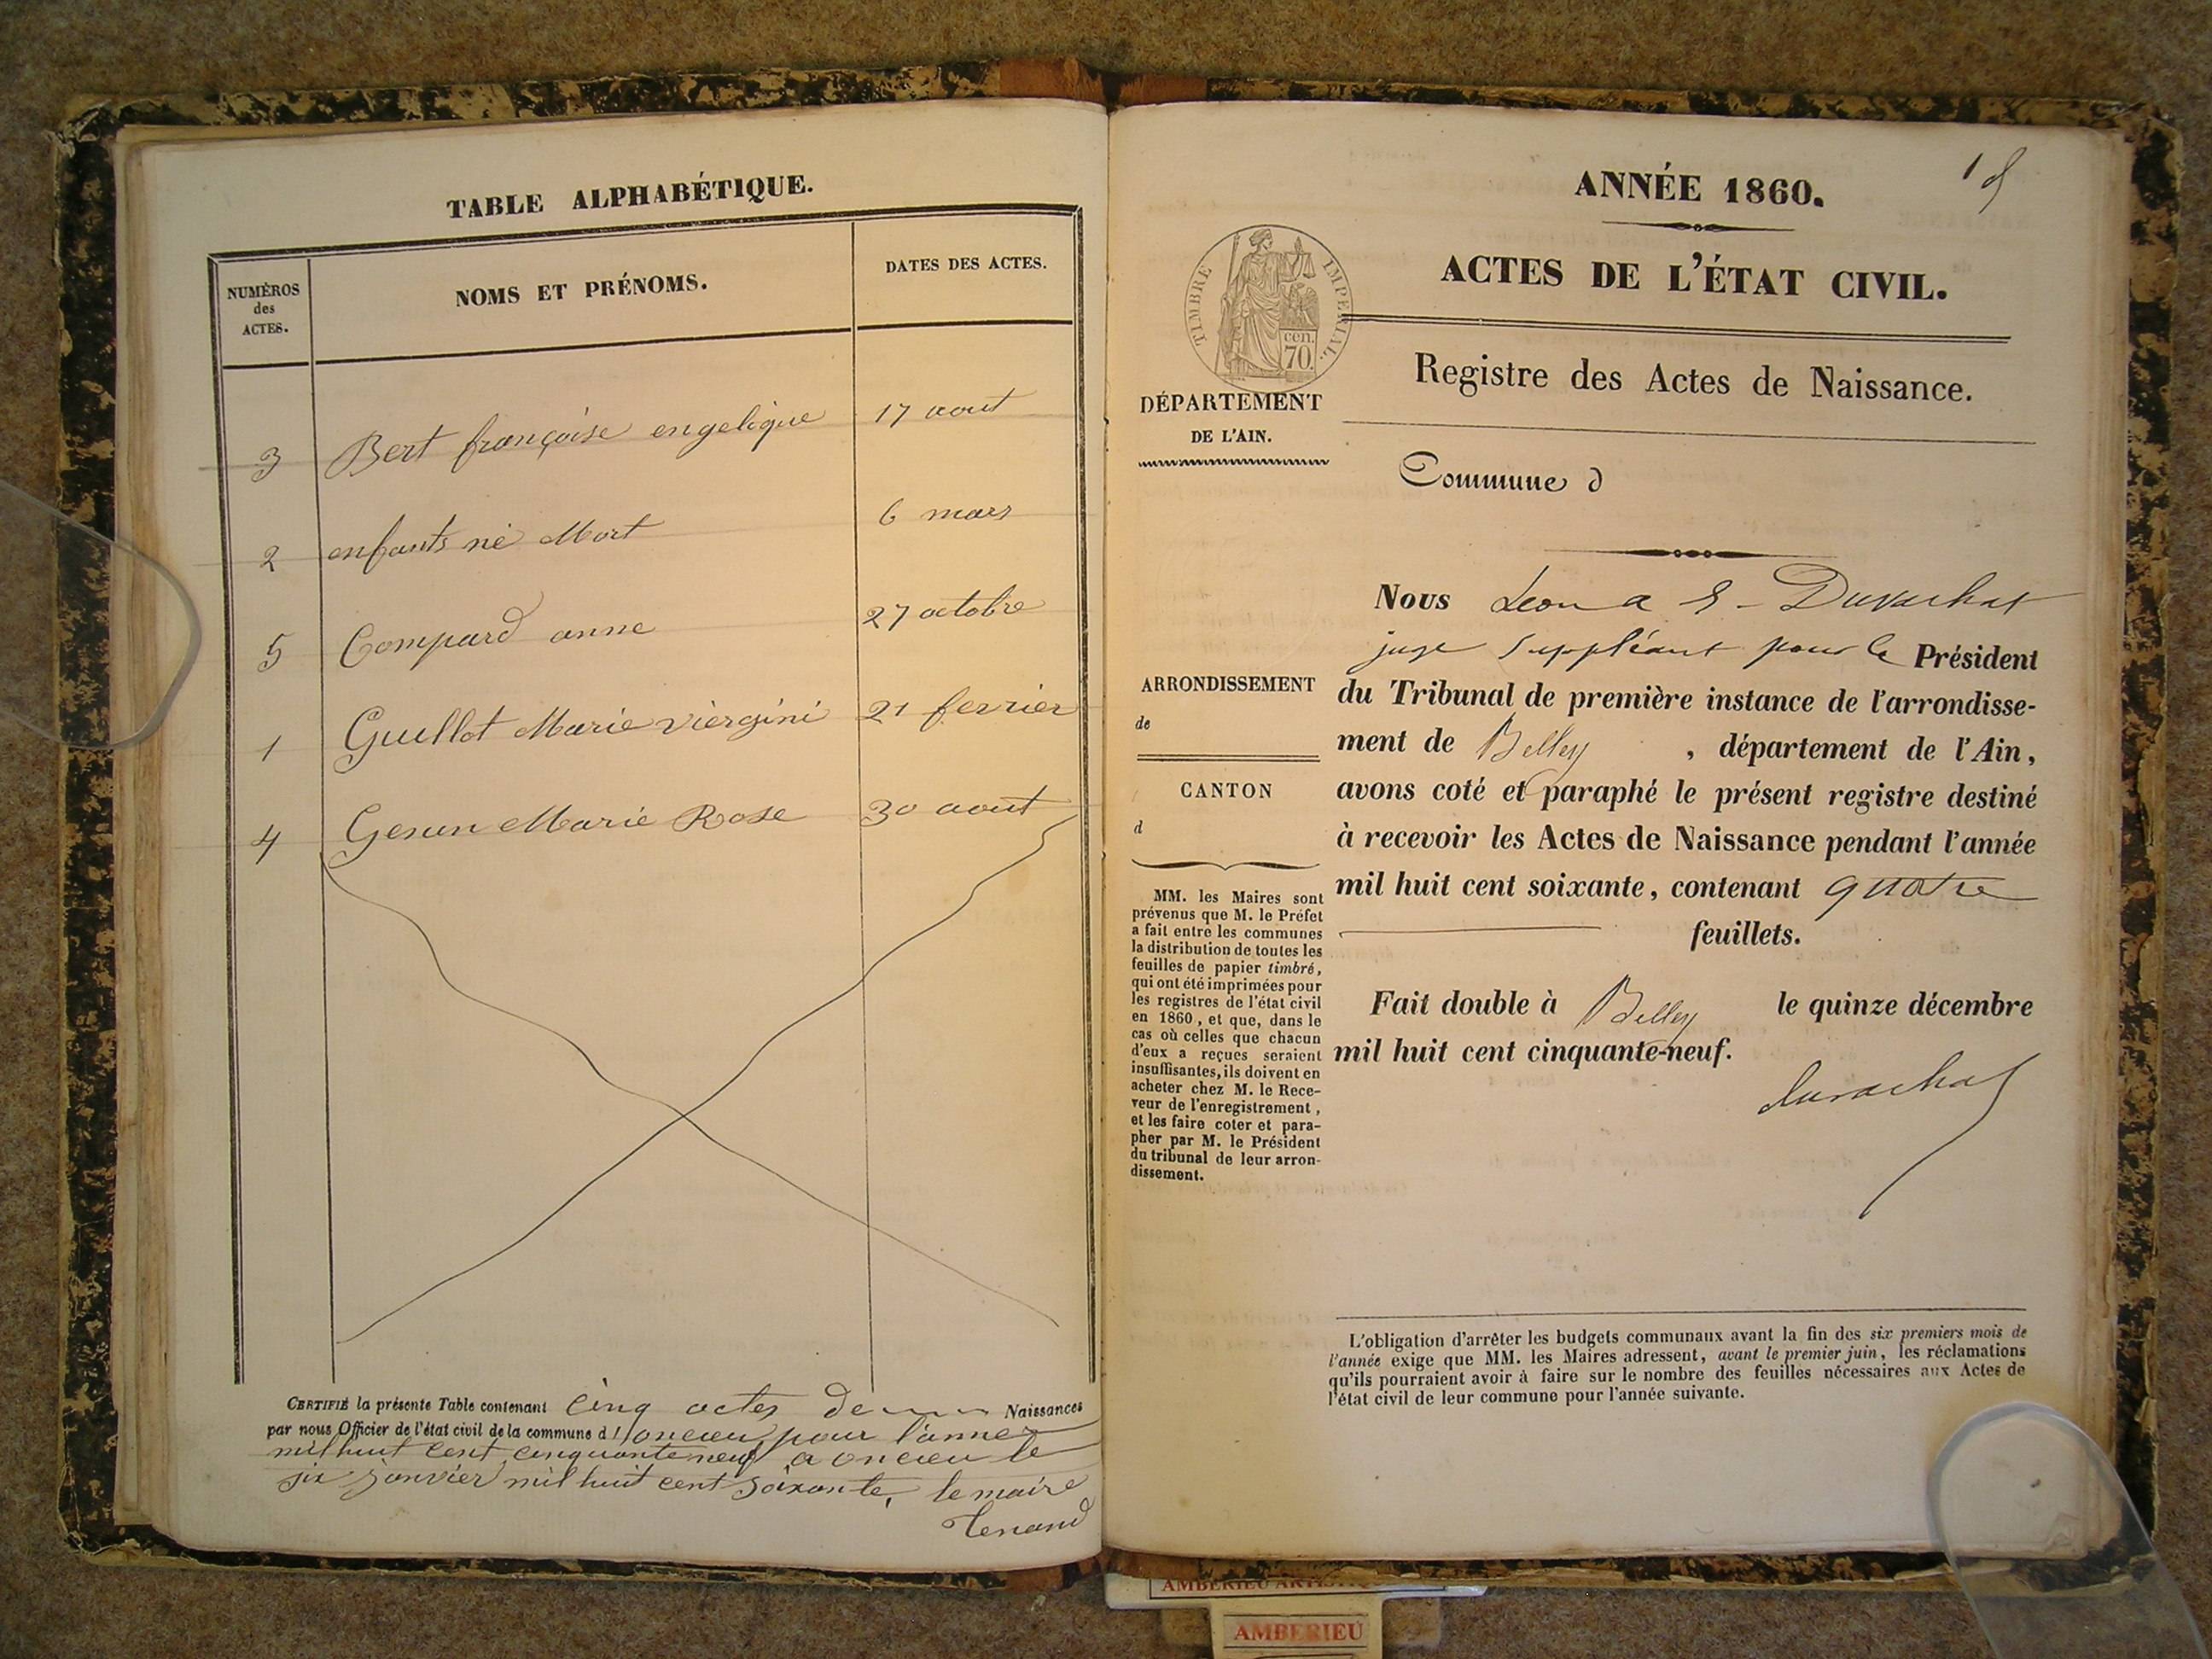 TABLE ALPHABÉTIQUE.
NUMÉROS
des
ACTES.
NOMS ET PRÉNOMS.
DATES DES ACTES.
3 Bert françoise engelique 17 aout
2 enfants né Mort 6 mars
5 Compard anne 27 octobre
1 Guillot Marie viergini 21 fevrier
4 Genin Marie Rose 30 aout
CERTIFIÉ la présente Table contenant Cinq actes de Naissances
par nous Officier de l'état civil de la commune d'oncieu pour l'anneé
mil huit cent cinquante neuf a oncieu le
six janvier mil huit cent soixante, le maire
Tenand
ANNÉE 1860.
1
ACTES DE L'ÉTAT CIVIL.
TIMBRE IMPÉRIAL.
cen.
70.
Registre des Actes de Naissance.
DÉPARTEMENT
DE L'AIN.
Commune d
ARRONDISSEMENT
de
CANTON
d
MM. les Maires sont
prévenus que M. le Préfet
a fait entre les communes
la distribution de toutes les
feuilles de papier timbré,
qui ont été imprimées pour
les registres de l'état civil
en 1860, et que, dans le
cas où celles que chacun
d'eux a reçues seraient
insuffisantes, ils doivent en
acheter chez M. le Rece-
veur de l'enregistrement,
et les faire coter et para-
pher par M. le Président
du tribunal de leur arron-
dissement.
Nous Leon Duvachat
juge Suppléant pour le Président
du Tribunal de première instance de l'arrondisse-
ment de Belley, département de l'Ain,
avons coté et paraphé le présent registre destiné
à recevoir les Actes de Naissance pendant l'année
mil huit cent soixante, contenant quatre
feuillets.
Fait double à Belley le quinze décembre
mil huit cent cinquante-neuf.
duvachat
L'obligation d'arrêter les budgets communaux avant la fin des six premiers mois de
l'année exige que MM. les Maires adressent, avant le premier juin, les réclamations
qu'ils pourraient avoir à faire sur le nombre des feuilles nécessaires aux Actes de
l'état civil de leur commune pour l'année suivante.
AMBERIEU
AMBERIEU